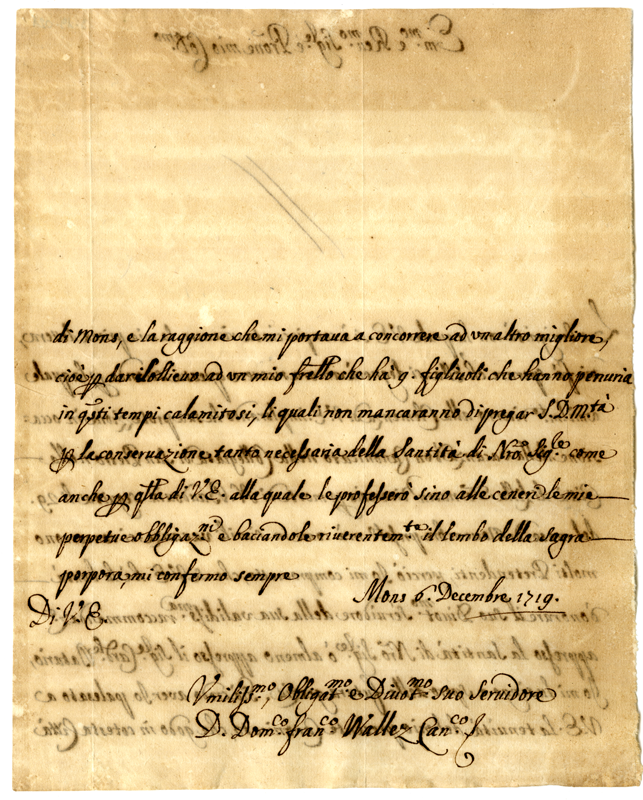 di Mons, e la raggione che mi portaua a concorrere ad vn altro migliore,
cioè p dar il ollieuo ad vn mio frello che ha 9. figliuoli che hanno penuria
in qsti tempi calamitosi, li quali non mancaranno di pregar S. D. Mtà
p la conseruazione tanto necessaria della Santità di Nro. Sigle. come
anche p qlla di V. E. alla quale le professerò sino alle ceneri le mie
perpetue obbligazni e baciandole riuerentemte il lembo della sagra
porpora, mi confermo sempre
Mons 6. Decembre 1719.
Di V. E.
Vmilissmo, Obligatmo e Diuotmo suo seruidore
D. Domco. franco. Wallez Canco